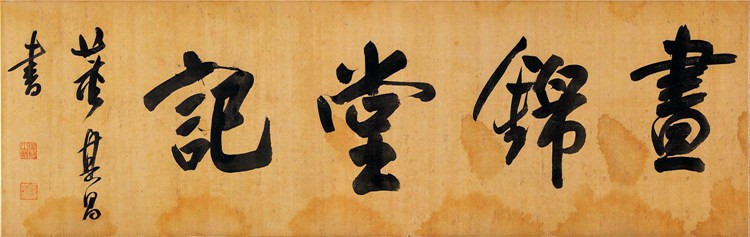 晝錦堂記
董其昌
書